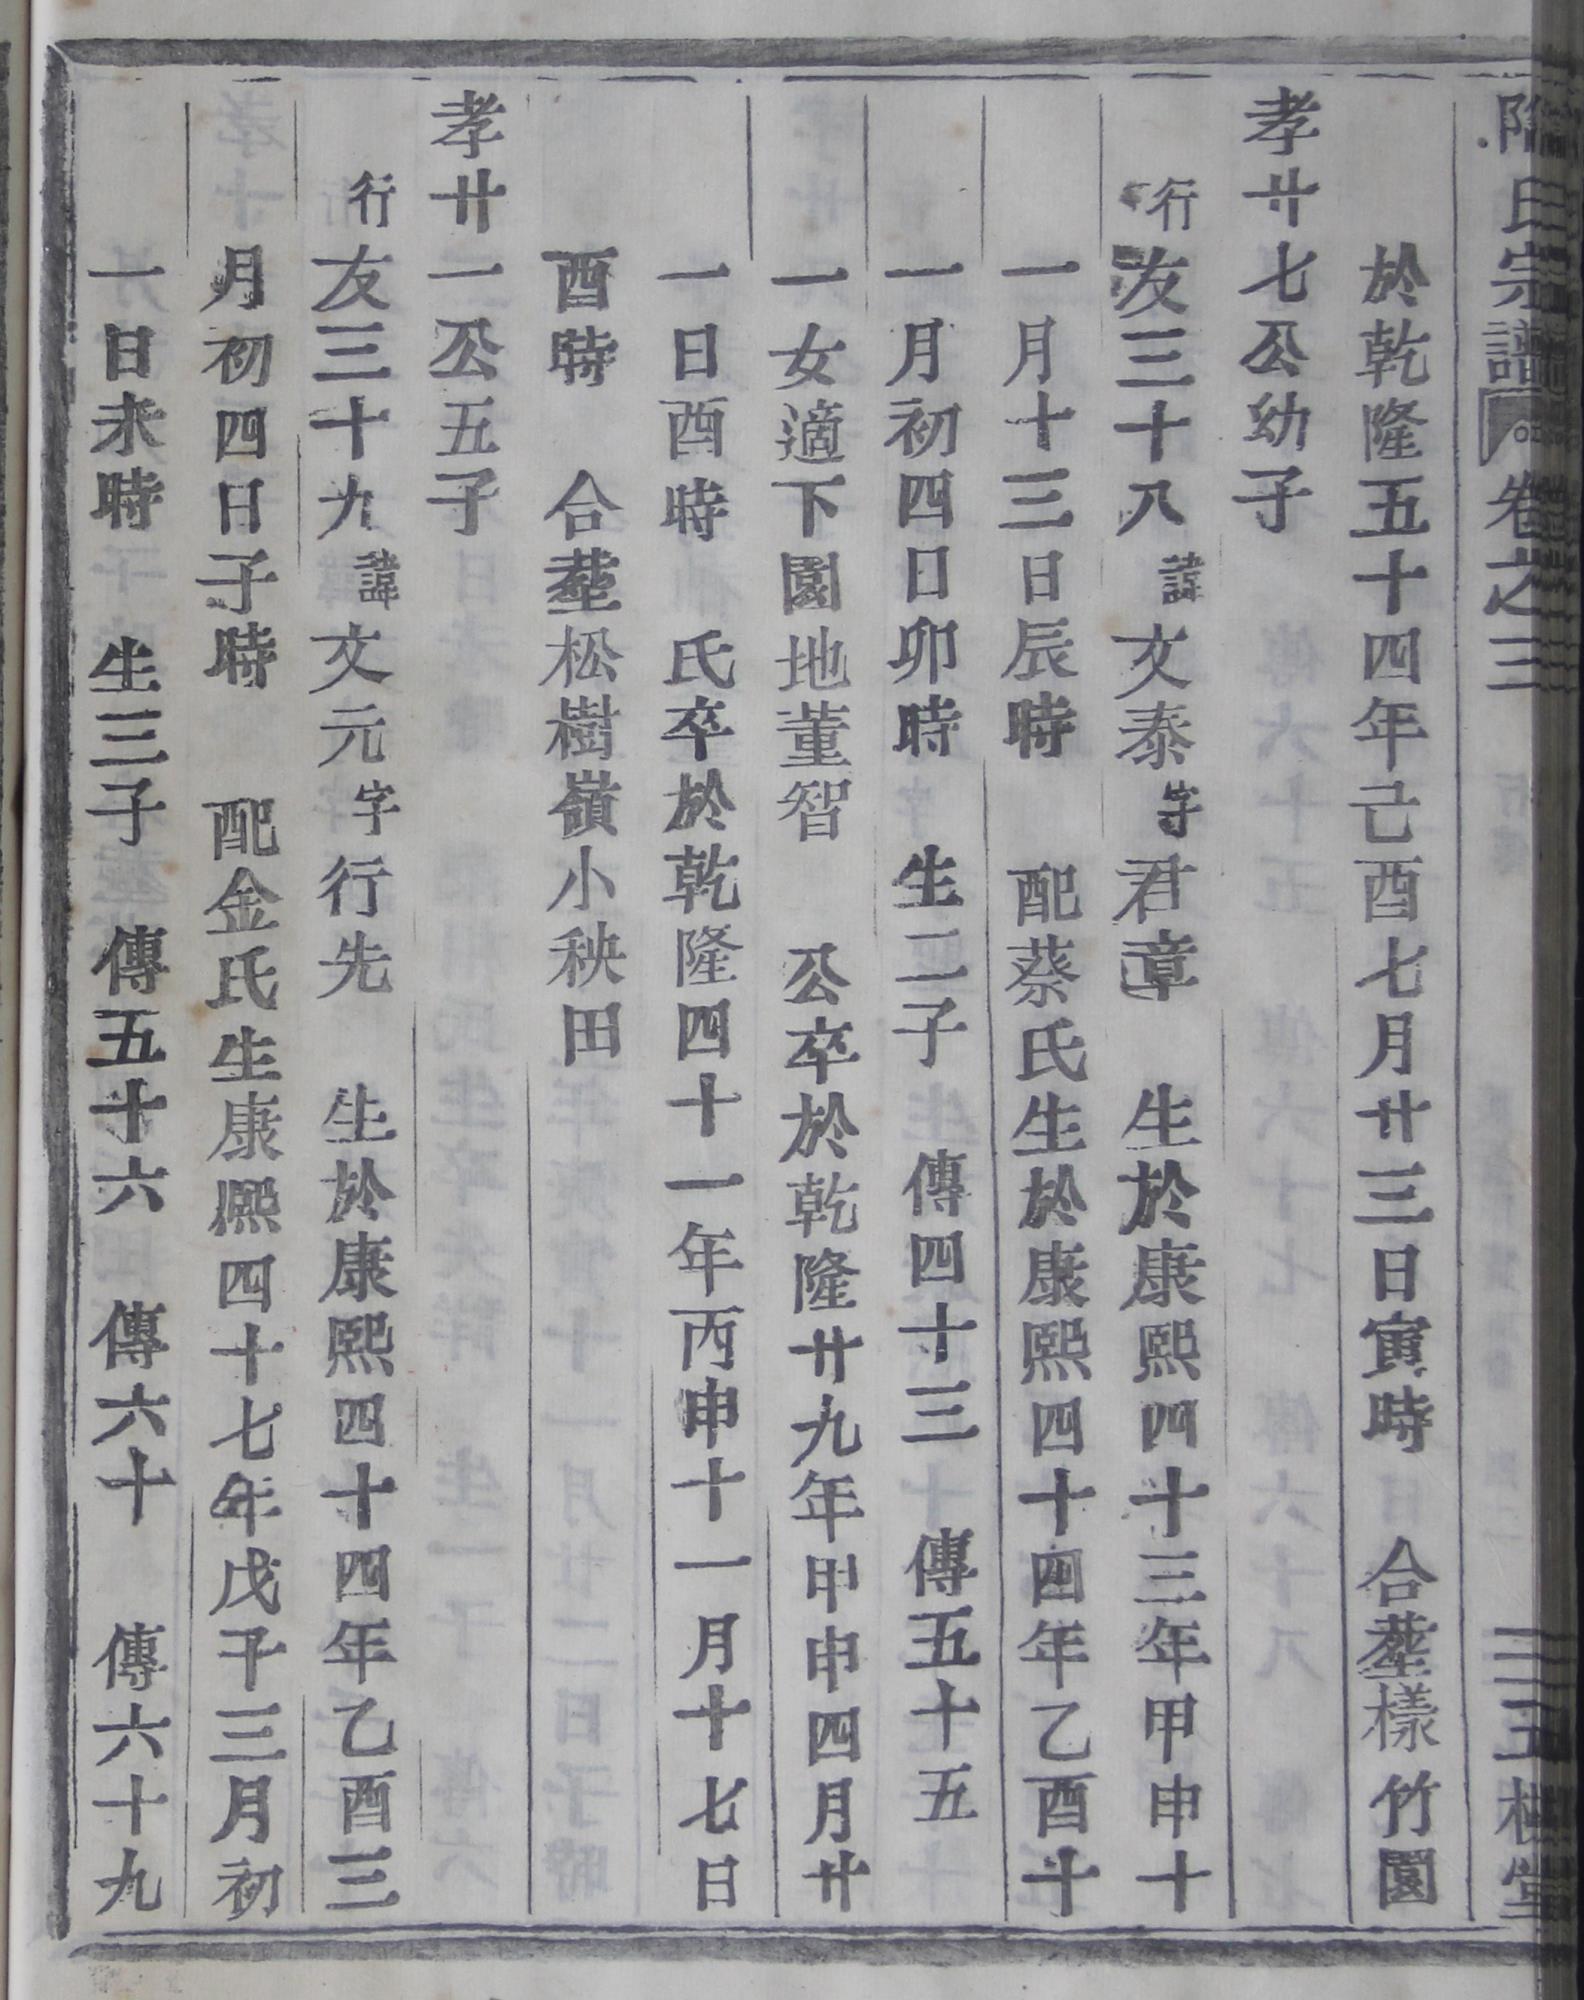 氏宗譜 卷之三 三五桂堂
於乾隆五十四年己酉七月廿三日寅時 合塟樣竹園
孝廿七公幼子
行友三十八諱文泰字君章 生於康熙四十三年甲申十
一月十三日辰時 配蔡氏生於康熙四十四年乙酉十
一月初四日卯時 生二子 傳四十三 傳五十五
一女適下園地董智 公卒於乾隆廿九年甲申四月廿
一日酉時 氏卒於乾隆四十一年丙申十一月十七日
酉時 合塟松樹嶺小秧田
孝廿一公五子
行友三十九諱文元字行先 生於康熙四十四年乙酉三
月初四日子時 配金氏生康熙四十七年戊子三月初
一日未時 生三子 傳五十六 傳六十 傳六十九